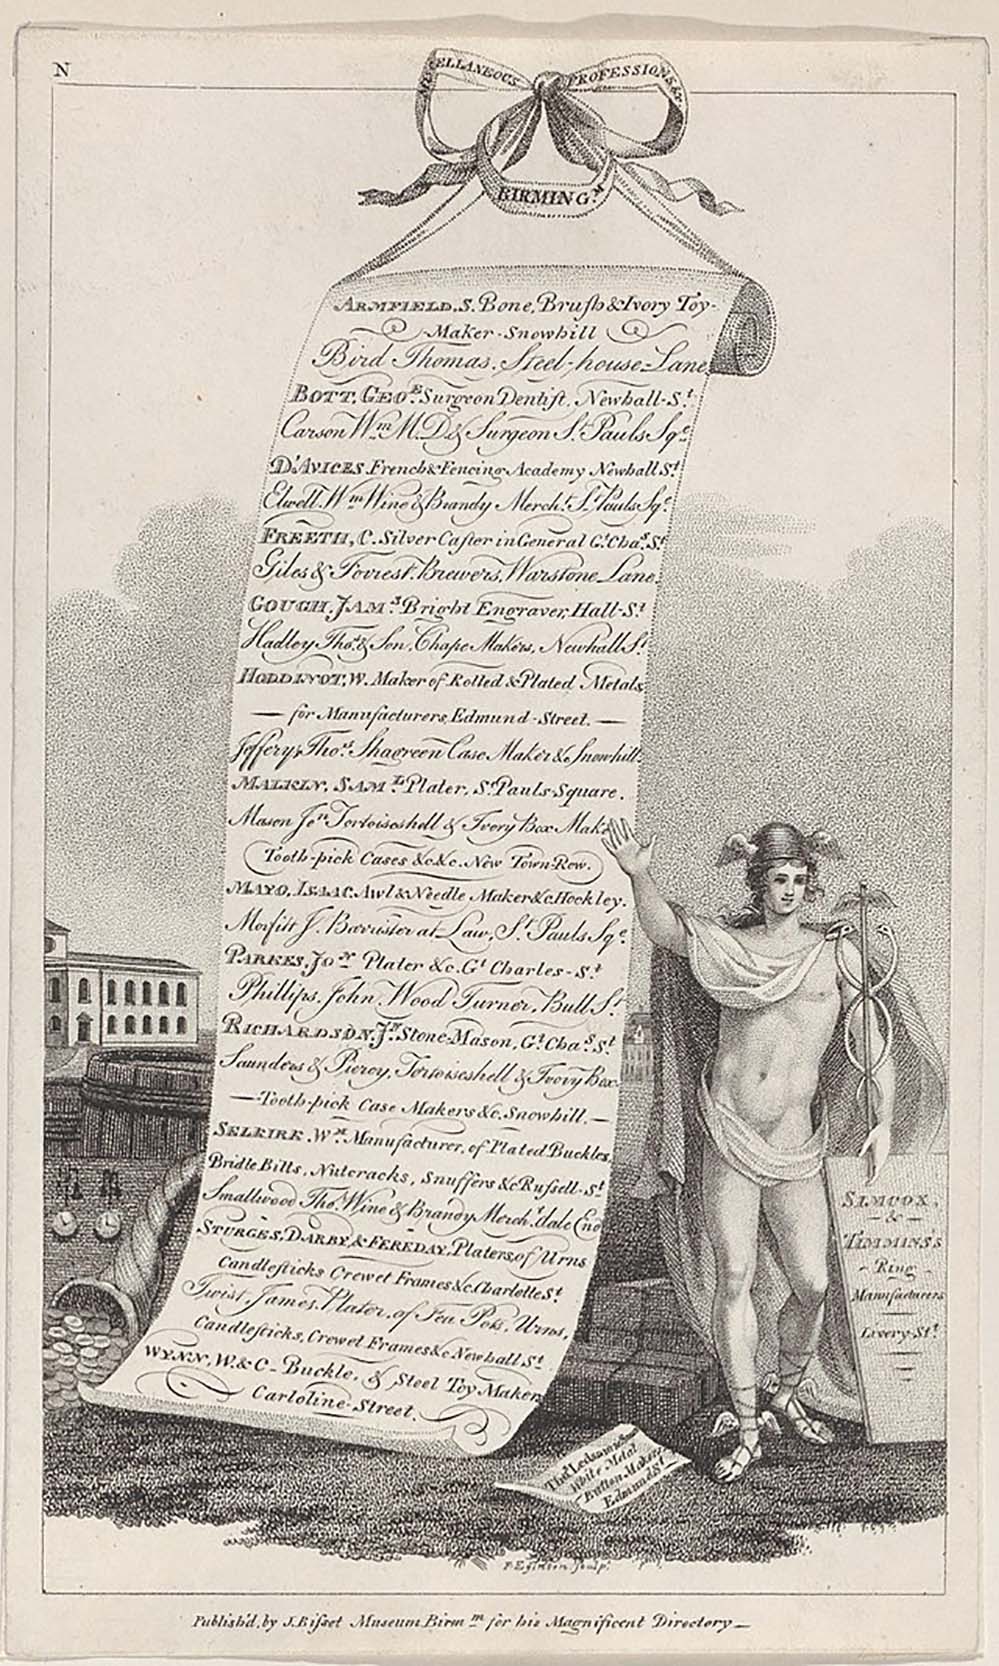 N
MISCELLANEOUS PROFESSIONS &c
BIRMING.M
ARMFIELD. S. Bone, Brush & Ivory Toy-
Maker - Snowhill
Bird Thomas. Steel-house-Lane
BOTT, GEO.E Surgeon Dentist. Newhall-S.t
Carson W.m M.D. & Surgeon S.t Pauls Sq.e
D'AVICES. French & Fencing Academy Newhall S.t
Elwell. W.m Wine & Brandy Merch.t S.t Pauls Sq.e
FREETH, C. Silver Caster in General G.t Cha.s S.t
Giles & Forrest. Brewers, Warstone Lane.
GOUGH. JAM.S Bright Engraver, Hall-S.t
Hadley Tho.s & Son, Chape Makers, Newhall S.t
HODDINOT, W. Maker of Rolled & Plated Metals
— for Manufacturers, Edmund-Street. —
Jefferys Tho.s Shagreen Case Maker &c Snowhill
MALKIN. SAM.L Plater, S.t Pauls Square.
Mason Jo.n Tortoiseshell & Ivory Box Make
Tooth-pick Cases &c &c. New Town-Row.
MAYO, ISAAC. Awl & Needle Maker &c Hockley.
Morfitt J. Barrister at Law, S.t Pauls Sq.e
PARKES, JO.N Plater &c. G.t Charles-S.t
Phillips. John. Wood Turner, Bull S.t
RICHARDSON. J.N Stone-Mason, G.t Cha.s S.t
Saunders & Piercy, Tortoiseshell & Ivory Box
— Tooth-pick Case Makers &c. Snowhill. —
SELKIRK, W.M Manufacturer, of Plated Buckles,
Bridle Bitts, Nutcracks, Snuffers &c Russell-S.t
Smallwood Tho.s Wine & Brandy Merch.t dale End
STURGES, DARBY, & FEREDAY, Platers, of Urns
Candlesticks Crewet Frames &c. Charlotte S.t
Twist. James. Plater, of Tea Pots, Urns,
Candlesticks, Crewet Frames &c Newhall S.t
WYNN, W. & C- Buckle, & Steel Toy Maker
Carloline-Street.
SIMCOX,
&
TIMMINSS
Ring
Manufacturers
Livery-S.t
Tho.s Ledsam
White Metal
Button Maker
Edmund S.t
F. Eginton Sculp.
Publish'd, by J. Bisset Museum Birm.m for his Magnificent Directory —